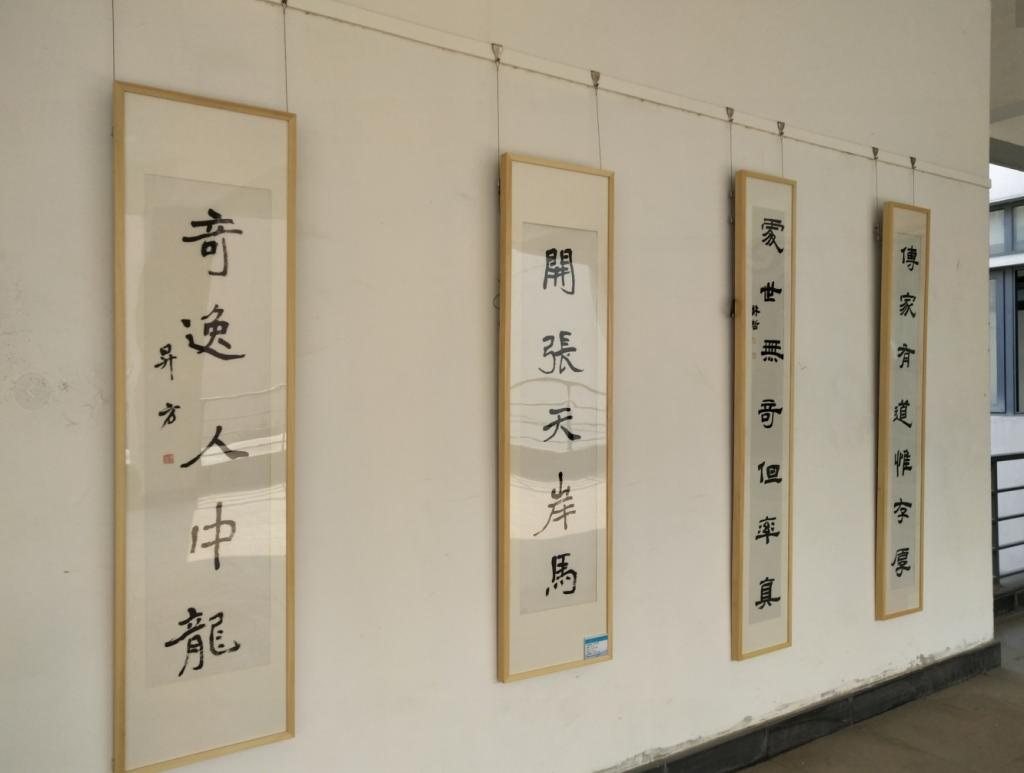 傳家有道惟存厚
處世無奇但率真
開張天岸馬
奇逸人中龍
昇方